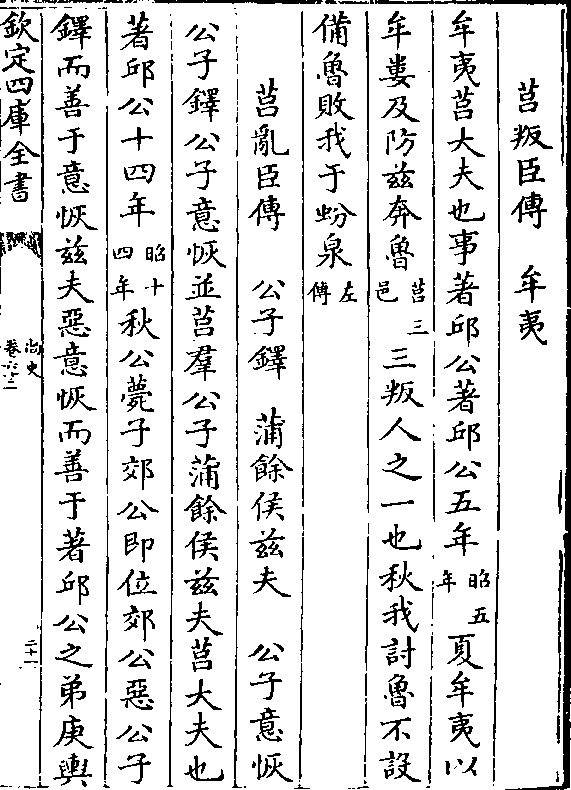 莒叛臣傳　牟夷
牟夷莒大夫也事著邱公著邱公五年昭五年夏牟夷以
牟婁及防兹奔魯莒三邑三叛人之一也秋我討魯不設
備魯敗我于蚡泉左傳
莒亂臣傳　公子鐸　蒲餘侯兹夫　公子意恢
公子鐸公子意恢並莒羣公子蒲餘侯兹夫莒大夫也
著邱公十四年昭十四年秋公薨子郊公即位郊公惡公子
鐸而善于意恢兹夫惡意恢而善于著邱公之弟庚輿
欽定四庫全書
尚史
卷六十二
二十一